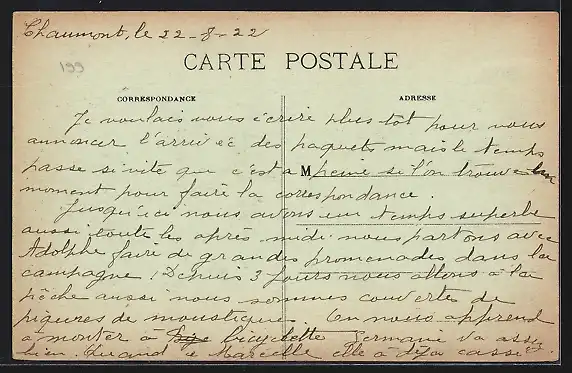 Chaumont, le 22-8-22
199
CARTE POSTALE
CORRESPONDANCE
ADRESSE
M
Je voulais vous écrire plus tôt pour vous
annoncer l'arrivée des paquets mais le temps
passe si vite que c'est a peine si l'on trouve un
moment pour faire la correspondance.
Jusqu'ici nous avons eu temps superbe
aussi toute les après midi nous partons avec
Adolphe faire de grandes promenades dans la
campagne. Depuis 3 jours nous allons à la
pêche aussi nous sommes couvertes de
piqures de moustique. On nous apprend
à monter à bicyclette Germaine va assez
bien. Quand à Marcelle elle a déja cassé